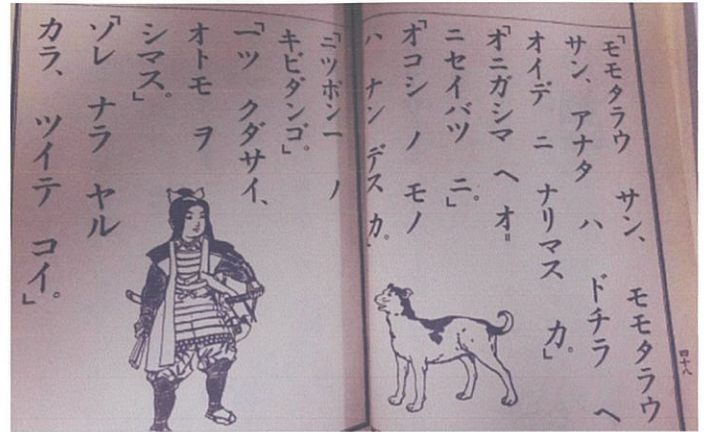 「モモタラウ サン、 モモタラウ
サン、 アナタ ハ ドチラ ヘ
オイデ ニ ナリマス カ。」
「オニガシマ ヘ オ=
ニセイバツ ニ。」
「オコシ ノ モノ
ハ ナン デス カ。」
「ニッポンー ノ
キビダンゴ。」
「一ツ クダサイ、
オトモ ヲ
シマス。」
「ソレ ナラ ヤル
カラ、 ツイテ コイ。」
四十八